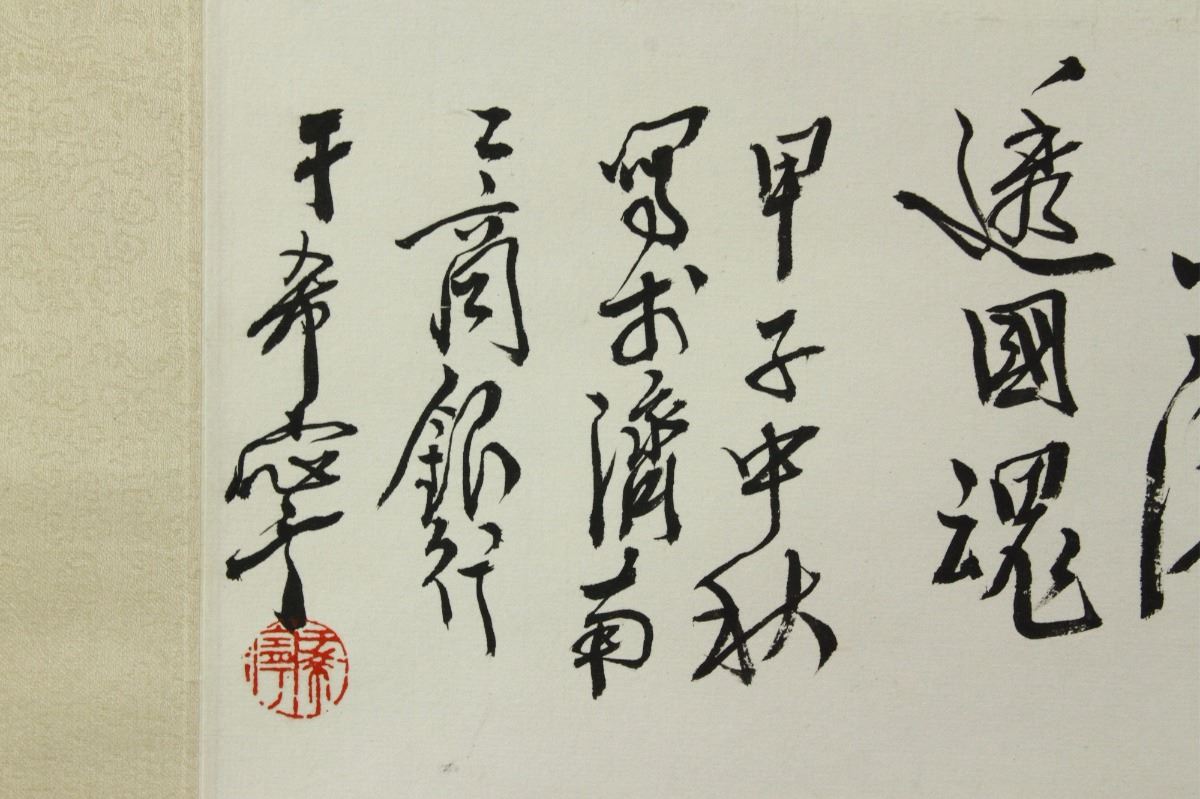 透國魂
甲子中秋
寫於濟南
工商銀行
于希寧